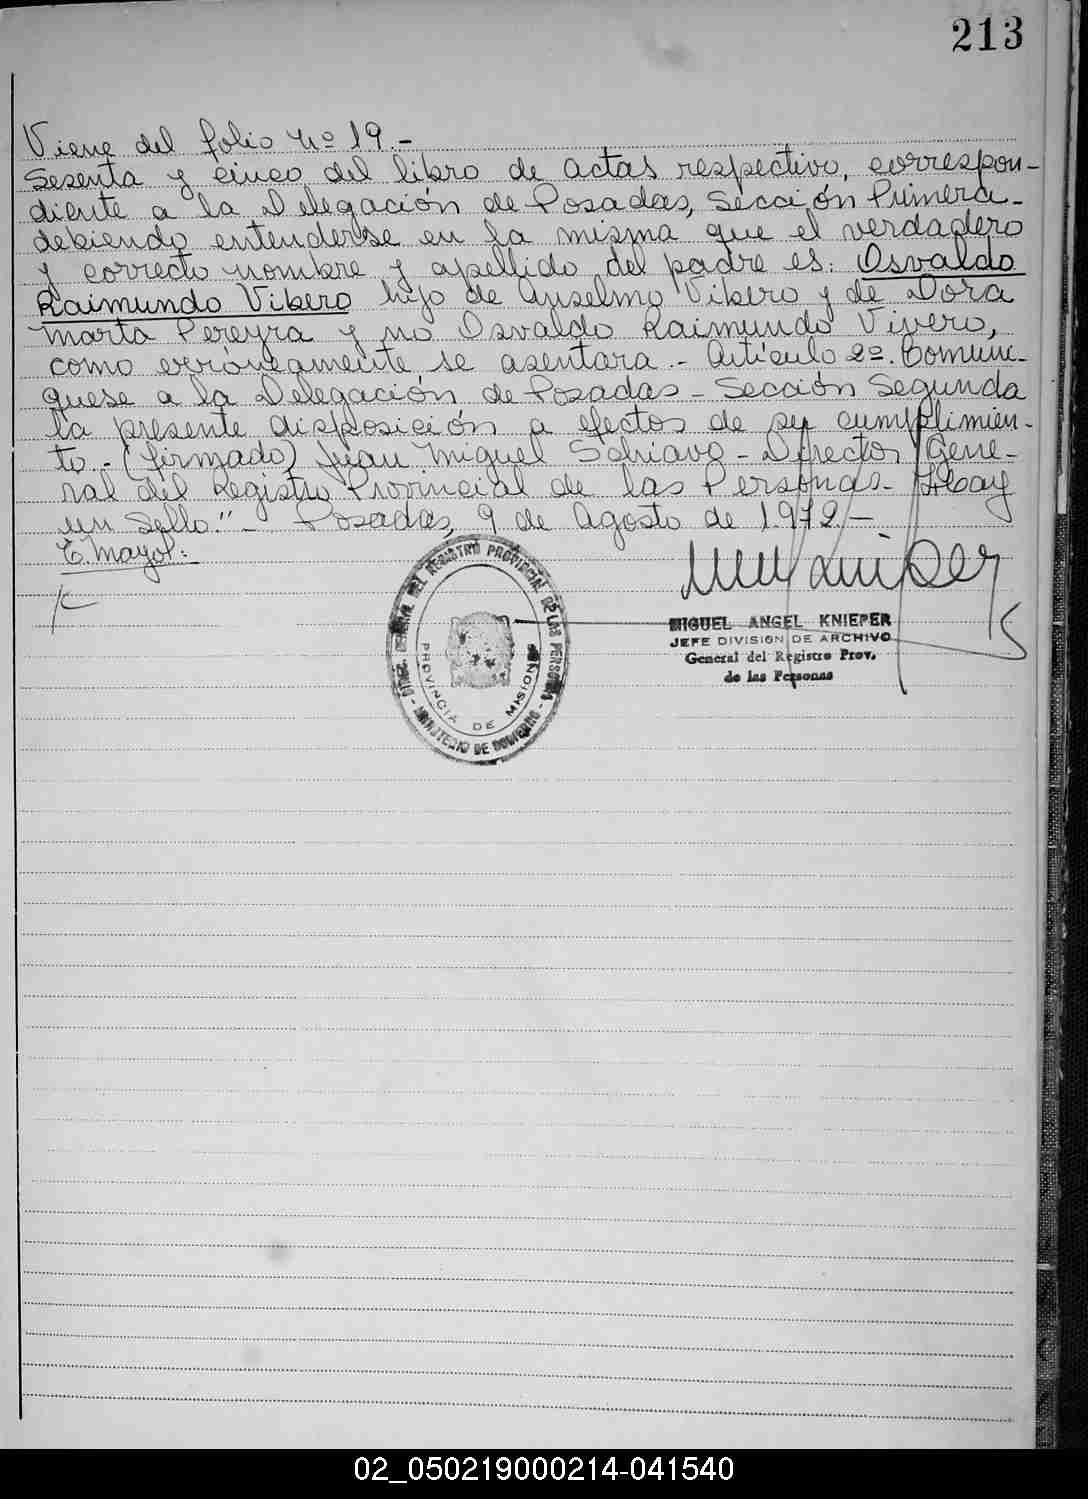 213
Viene del folio Nº 19.-
Sesenta y cinco del libro de actas respectivo, correspon-
diente a la Delegación de Posadas, Sección Primera-
debiendo entenderse en la misma que el verdadero
y correcto nombre y apellido del padre es: Osvaldo
Raimundo Vibero hijo de Anselmo Vibero y de Dora
Marta Pereyra y no Osvaldo Raimundo Vivero,
como erróneamente se asentara.- Artículo 2º. Comuni-
quese a la Delegación de Posadas - Sección Segunda
la presente disposición a efectos de su cumplimien-
to.- (firmado) Juan Miguel Schiavo - Director Gene-
ral del Registro Provincial de las Personas- Hay
un Sello."- Posadas, 9 de Agosto de 1972.-
E. Mayol:
MIGUEL ANGEL KNIEPER
JEFE DIVISION DE ARCHIVO
General del Registro Prov.
de las Personas
GENERAL DEL REGISTRO PROVINCIAL DE LAS PERSONAS
MINISTERIO DE GOBIERNO
PROVINCIA DE MISIONES
02_050219000214-041540